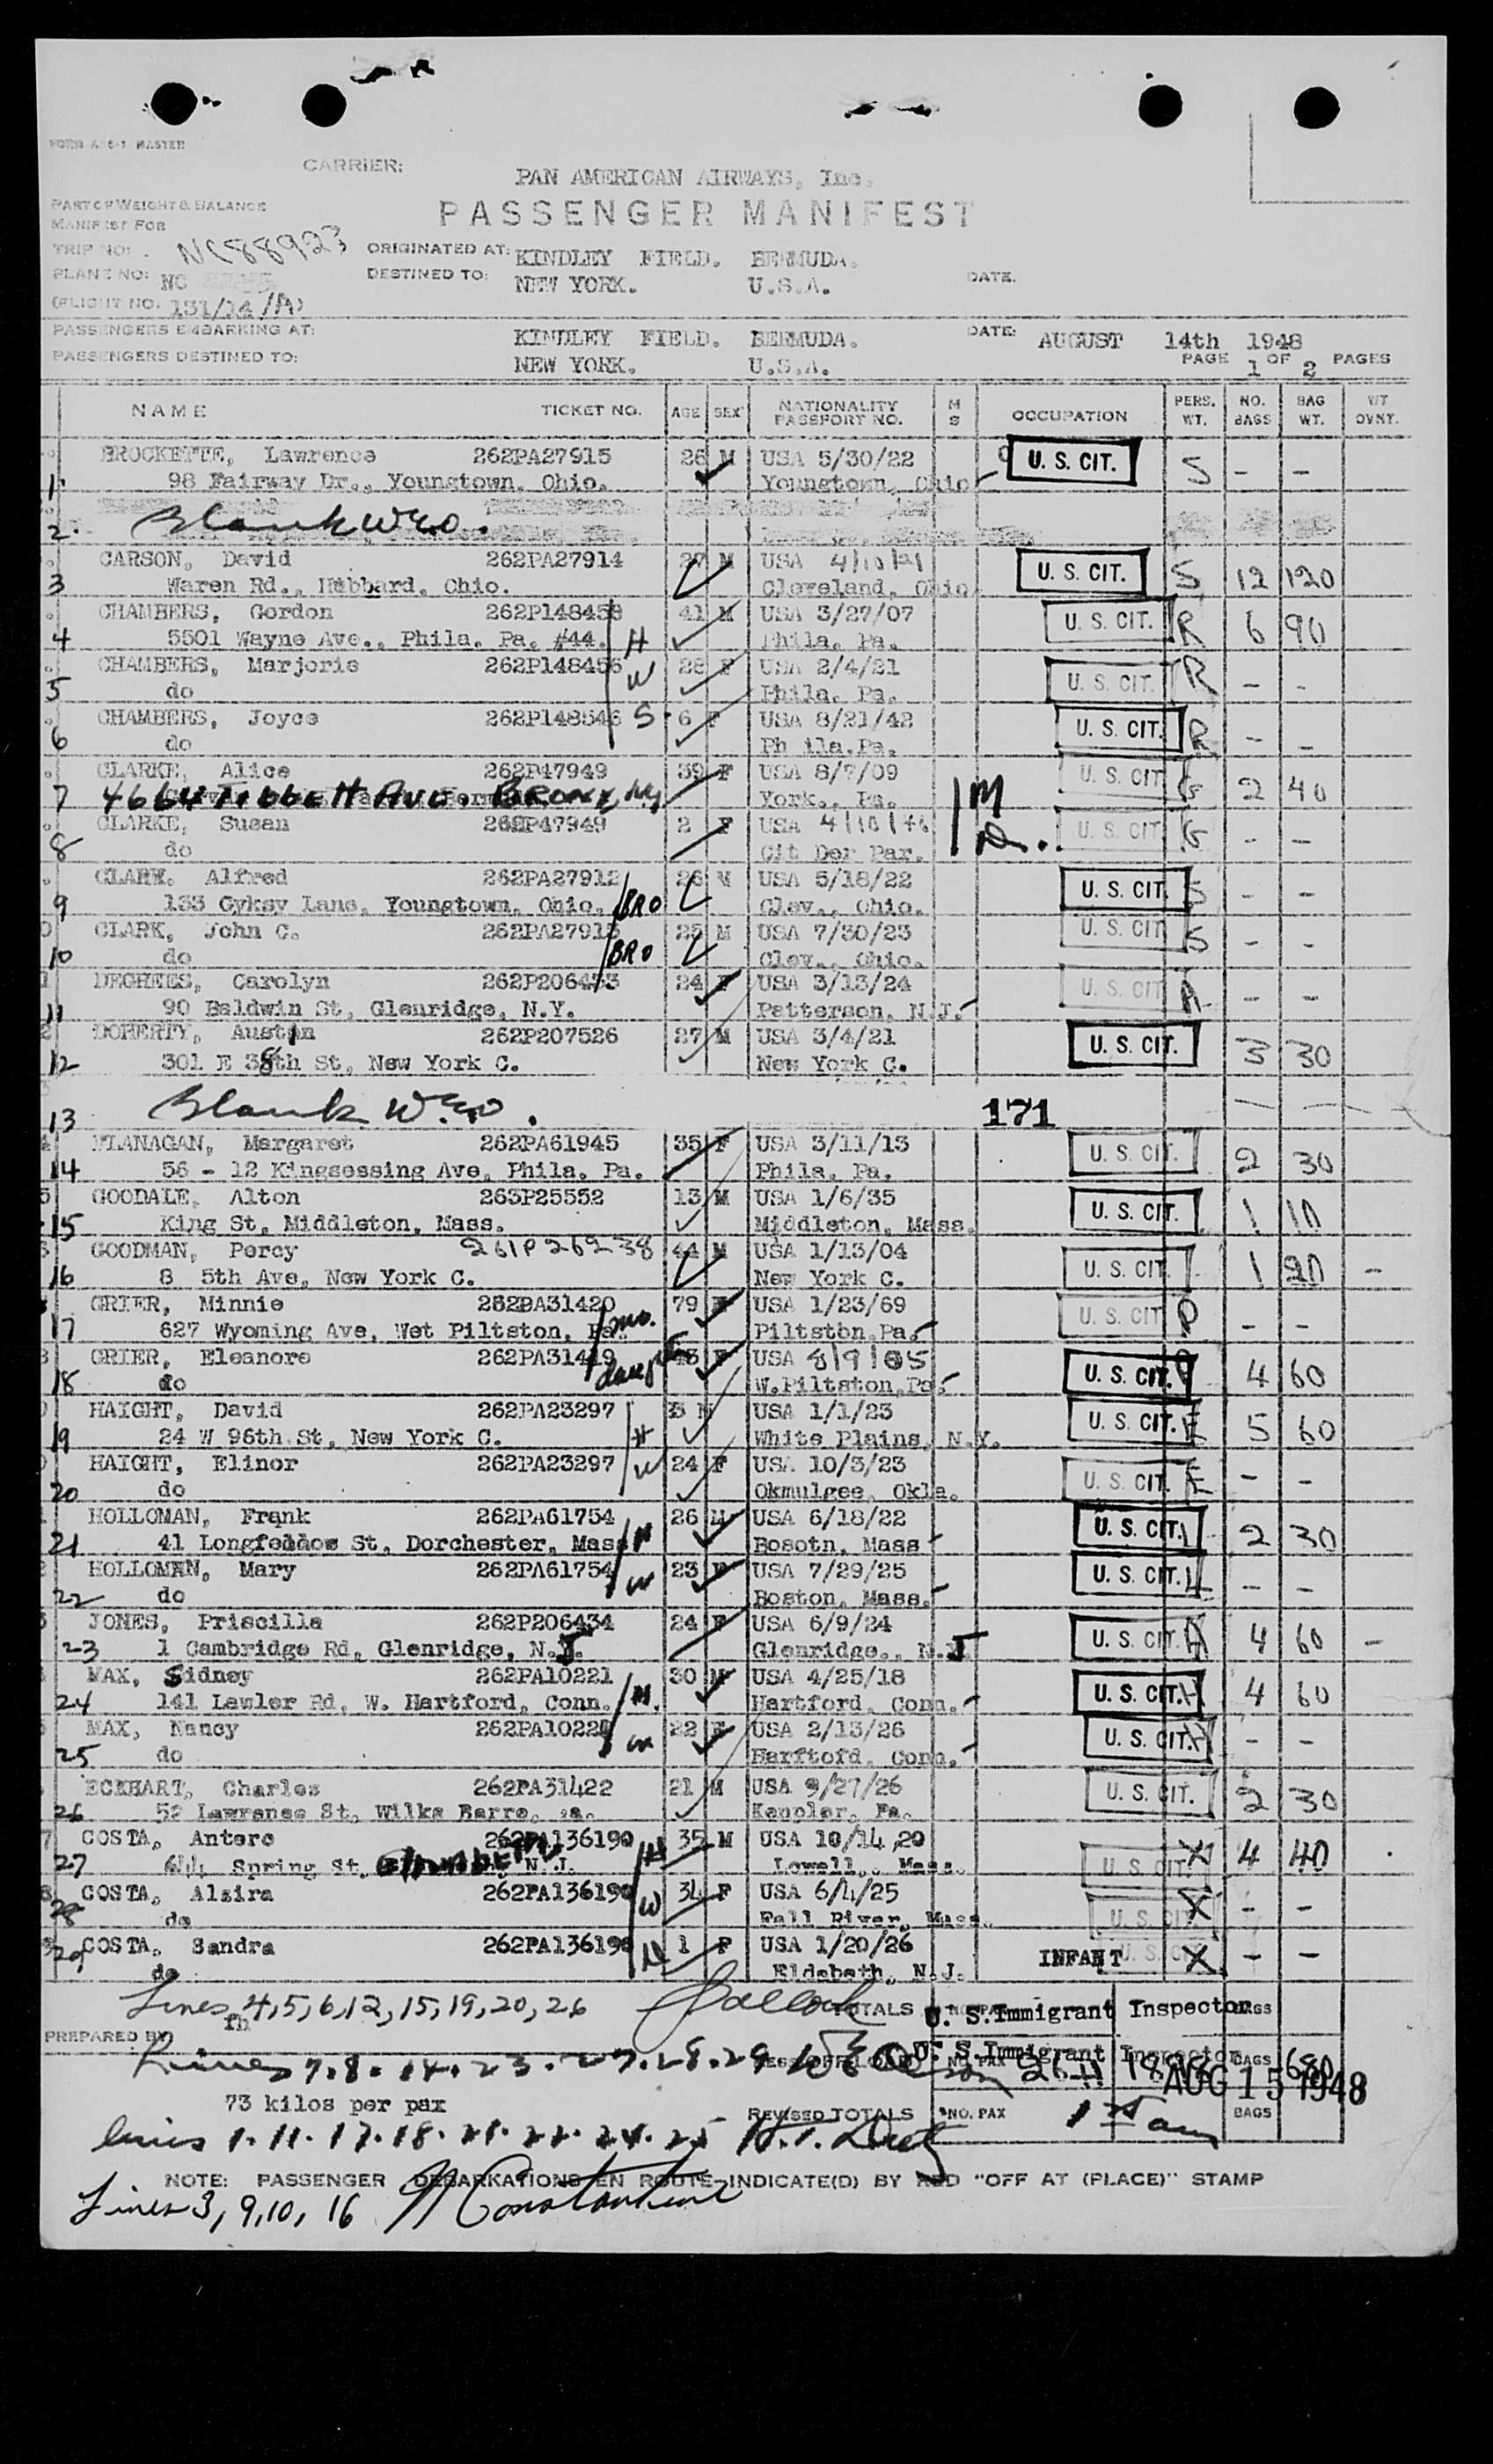 FORM A-6-1 MASTER
CARRIER: PAN AMERICAN AIRWAYS, Inc.
PASSENGER MANIFEST
PART OF WEIGHT & BALANCE
MANIFEST FOR
TRIP NO: NC88923 ORIGINATED AT: KINDLEY FIELD. BERMUDA.
PLANT NO: NC DESTINED TO: NEW YORK. U.S.A. DATE.
(FLIGHT NO. 131/14/(A)
PASSENGERS EMBARKING AT: KINDLEY FIELD. BERMUDA. DATE: AUGUST 14th 1948
PASSENGERS DESTINED TO: NEW YORK. U.S.A. PAGE 1 OF 2 PAGES
NAME TICKET NO. AGE SEX NATIONALITY PASSPORT NO. M S OCCUPATION PERS. WT. NO. BAGS BAG WT. WT OVNT.
BROCKETTE, Lawrence 262PA27915 26 M USA 5/30/22 U. S. CIT. S - -
1. 98 Fairway Dr., Youngtown, Ohio. Youngtown, Ohio
2. Blank WEO.
CARSON, David 262PA27914 27 M USA 4/10/21 U. S. CIT. S 12 120
3 Waren Rd., Hubbard, Ohio. Cleveland, Ohio
CHAMBERS, Gordon 262P148458 41 M USA 3/27/07 U. S. CIT. R 6 90
4 5501 Wayne Ave., Phila. Pa. #44. H Phila. Pa.
CHAMBERS, Marjorie 262P148456 28 F USA 2/4/21 U. S. CIT. R - -
5 do W Phila. Pa.
CHAMBERS, Joyce 262P148546 S. 6 F USA 8/21/42 U. S. CIT. R - -
6 do Ph ila.Pa.
CLARKE, Alice 262P47949 39 F USA 8/7/09 U. S. CIT G 2 40
7 4664 TibbeTT Ave. BRONX, NY York., Pa. M
CLARKE, Susan 262P47949 2 F USA 4/10/46 U. S. CIT G - -
8 do Cit Der Par. D.
CLARK. Alfred 262PA27912 26 M USA 5/18/22 U. S. CIT. S - -
9 133 Gyksy Lane, Youngtown, Ohio. BRO Clev., Ohio.
CLARK, John C. 262PA27913 25 M USA 7/30/23 U. S. CIT S - -
10 do BRO Clev., Ohio.
DEGHEES, Carolyn 262P206433 24 F USA 3/13/24 U. S. CIT A - -
11 90 Baldwin St, Glenridge, N.Y. Patterson, N.J.
DOHERTY, Austin 262P207526 27 M USA 3/4/21 U. S. CIT. 3 30
12 301 E 38th St, New York C. New York C.
13 Blank WEO. 171
FLANAGAN, Margaret 262PA61945 35 F USA 3/11/13 U. S. CIT. 2 30
14 56 - 12 Kingsessing Ave, Phila. Pa. Phila. Pa.
GOODALE, Alton 263P25552 13 M USA 1/6/35 U. S. CIT. 1 10
15 King St, Middleton, Mass. Middleton, Mass.
GOODMAN, Percy 261P26238 44 M USA 1/13/04 U. S. CIT. 1 20 -
16 8 5th Ave, New York C. New York C.
GRIER, Minnie 262PA31420 79 F USA 1/23/69 U. S. CIT P - -
17 627 Wyoming Ave, Wet Piltston, Pa. mo. Piltston.Pa.
GRIER, Eleanore 262PA31419 43 F USA 8/9/05 U. S. CIT. P 4 60
18 do W.Piltston,Pa.
HAIGHT, David 262PA23297 USA 1/1/23 U. S. CIT. E 5 60
19 24 W 96th St, New York C. H White Plains, N.Y.
HAIGHT, Elinor 262PA23297 24 F USA 10/3/23 U. S. CIT. E - -
20 do W Okmulgee, Okla.
HOLLOMAN, Frank 262PA61754 26 M USA 6/18/22 U. S. CIT. 2 30
21 41 Longfeddow St, Dorchester, Mass H Bosotn, Mass
HOLLOMAN, Mary 262PA61754 23 F USA 7/29/25 U. S. CIT. - -
22 do W Boston, Mass.
JONES, Priscilla 262P206434 24 F USA 6/9/24 U. S. CIT. A 4 60 -
23 1 Cambridge Rd, Glenridge, N.J. Glenridge., N.J
MAX, Sidney 262PA10221 30 M USA 4/25/18 U. S. CIT. H 4 60
24 141 Lawler Rd, W. Hartford, Conn. H. Hartford, Conn.
MAX, Nancy 262PA10221 22 F USA 2/13/26 U. S. CIT H - -
25 do W Harftofd, Conn.
ECKHART, Charles 262PA31422 21 M USA 9/27/26 U. S. CIT. 2 30
26 52 Lawrense St, Wilks Barre, Kappler, Pa.
COSTA, Antero 262PA136190 35 M USA 10/14/20 U. S. CIT. X 4 40
27 644 Spring St. N.J. H Lowell,. Mass.
COSTA, Alzira 262PA136190 34 F USA 6/4/25 U. S. CIT. X - -
28 do W Fall River, Mass.
COSTA, Sandra 262PA136190 1 F USA 1/20/26 INFANT U. S. CIT. X - -
29 do D Eldsbeth, N.J.
Lines 4,5,6,12,15,19,20,26 TOTALS U. S. Immigrant Inspector
PREPARED BY
Lines 7.8.14.23.27.28.29 NO. PAX U. S. Immigrant Inspector BAGS 680
AUG 15 1948
73 kilos per pax
REVISED TOTALS NO. PAX BAGS
lines 1.11.17.18.21.22.24.25
NOTE: PASSENGER DEBARKATIONS EN ROUTE-INDICATE(D) BY RED "OFF AT (PLACE)" STAMP
Lines 3, 9, 10, 16 Constantine